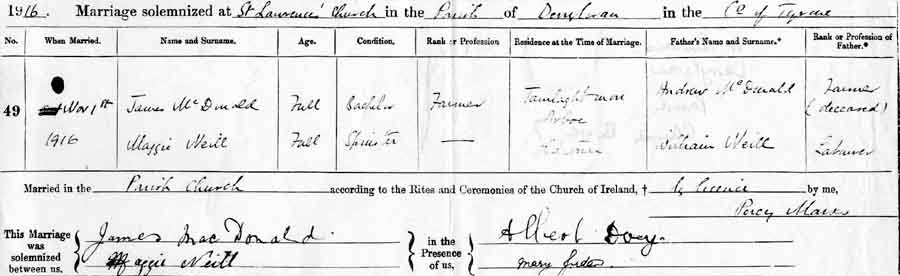 1916. Marriage solemnized at St Lawrences' Church in the Parish of Derryloran in the Co of Tyrone
No. When Married. Name and Surname. Age. Condition. Rank or Profession Residence at the Time of Marriage. Father's Name and Surname.* Rank or Profession of Father.*
49 Nov 1st James McDonald Full Bachelor Farmer Tamlaght more Arboe Andrew McDonald Farmer (deceased)
1916 Maggie Neill Full Spinster — William Neill Labourer
Married in the Parish Church according to the Rites and Ceremonies of the Church of Ireland, † by licence by me,
Percy Marks
This Marriage was solemnized between us, { James MacDonald
Maggie Neill } in the Presence of us, { Albert Doey.
Mary }